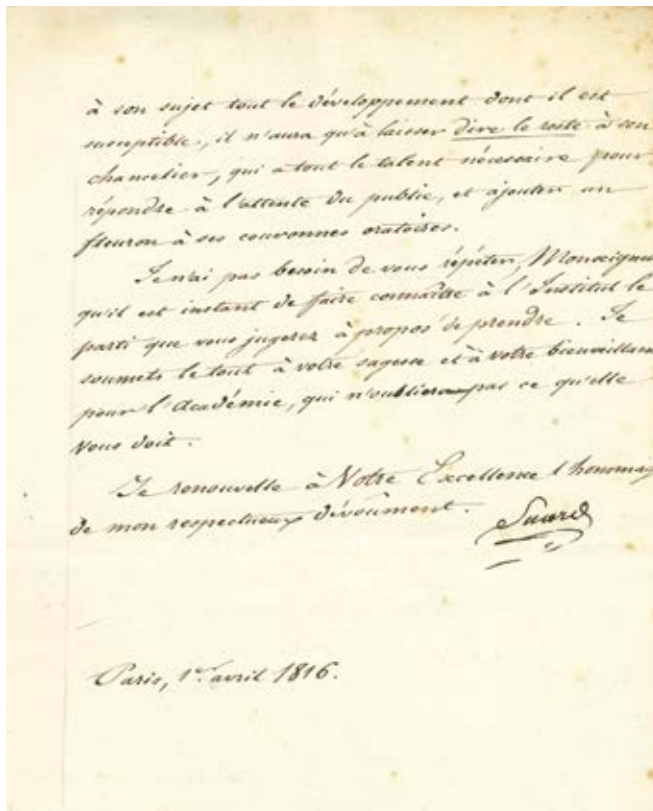 à son sujet tout le développement dont il est
susceptible, il n'aura qu'à laisser dire le reste à son
chancelier, qui a tout le talent nécessaire pour
répondre à l'attente du public, et ajouter un
fleuron à ses couronnes oratoires.
Je n'ai pas besoin de vous répéter, Monseigneu
qu'il est instant de faire connaître à l'Institut le
parti que vous jugerez à propos de prendre. Je
soumets le tout à votre sagesse et à votre bienveillan
pour l'Académie, qui n'oubliera pas ce qu'elle
vous doit.
Je renouvelle à Votre Excellence l'hommag
de mon respectueux dévoûment.
Suard
Paris, 1er. avril 1816.